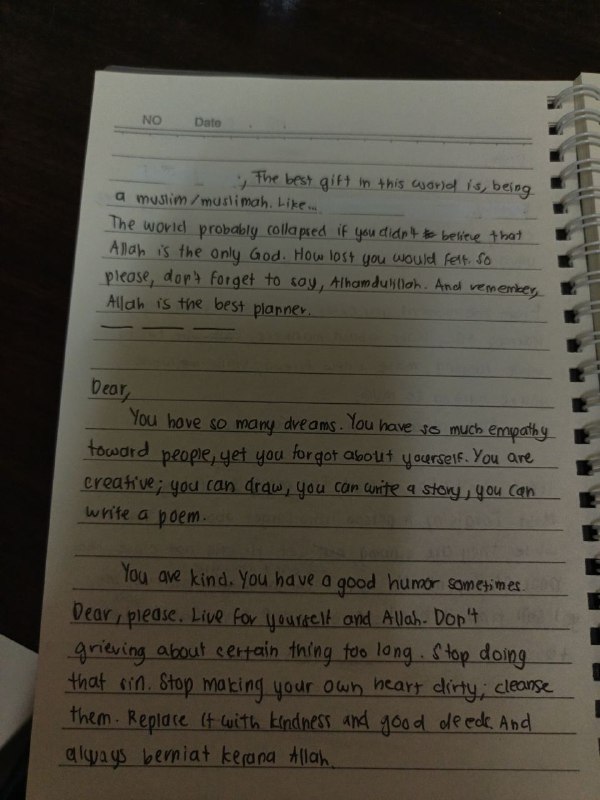 NO Date
:, The best gift in this world is, being
a muslim/muslimah. Like...
The world probably collapsed if you didn't believe that
Allah is the only God. How lost you would felt. So
please, don't forget to say, Alhamdulillah. And remember,
Allah is the best planner.
Dear,
You have so many dreams. You have so much empathy
toward people, yet you forgot about yourself. You are
creative; you can draw, you can write a story, you can
write a poem.
You are kind. You have a good humor sometimes.
Dear, please. Live for yourself and Allah. Don't
grieving about certain thing too long. Stop doing
that sin. Stop making your own heart dirty; cleanse
them. Replace it with kindness and good deeds. And
always berniat kerana Allah.